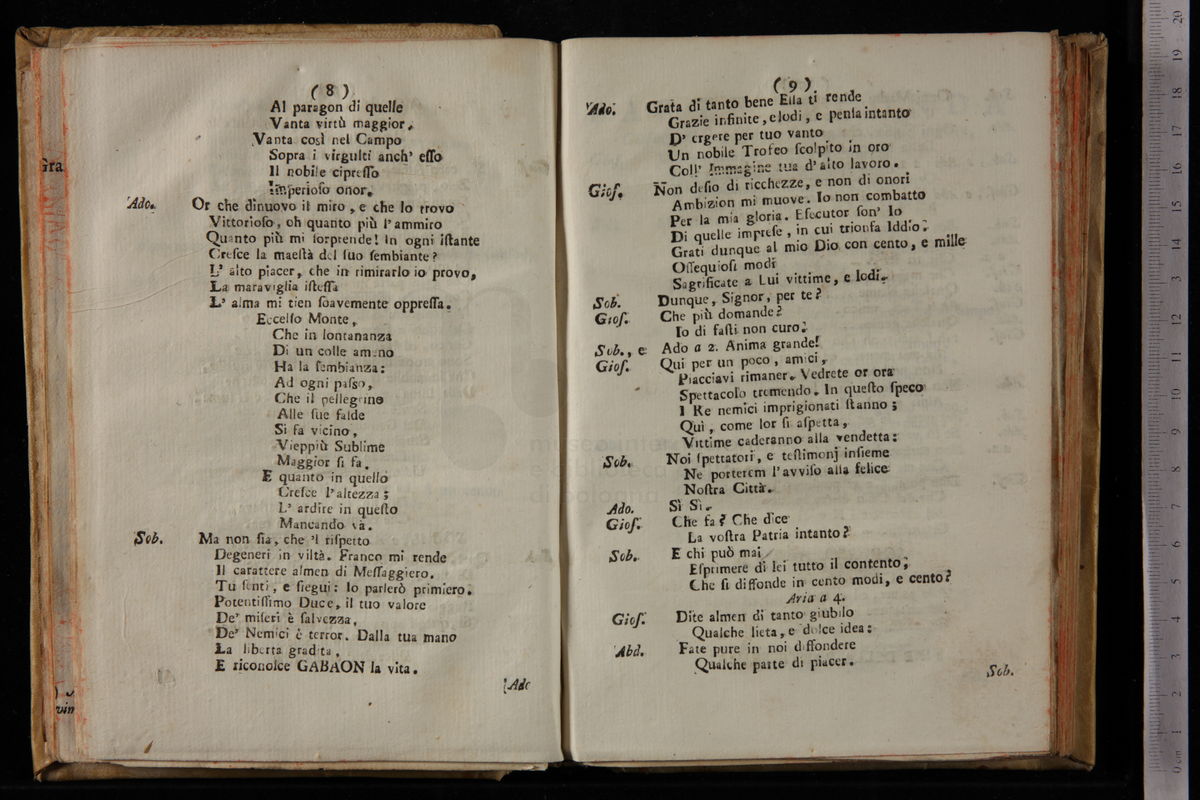 ( 8 )
Al paragon di quelle
Vanta virtù maggior.
Vanta così nel Campo
Sopra i virgulti anch' eſſo
Il nobile cipreſſo
Imperioſo onor.
Ado. Or che dinuovo il miro, e che lo trovo
Vittorioſo, oh quanto più l'ammiro
Quanto più mi ſorprende! In ogni iſtante
Creſce la maeſtà del ſuo ſembiante?
L' alto piacer, che in rimirarlo io provo,
La maraviglia iſteſſa
L' alma mi tien ſoavemente oppreſſa.
Eccelſo Monte,
Che in lontananza
Di un colle ameno
Ha la ſembianza:
Ad ogni paſso,
Che il pellegrino
Alle ſue falde
Si fa vicino,
Vieppiù Sublime
Maggior ſi fa.
E quanto in quello
Creſce l'altezza;
L' ardire in queſto
Mancando và.
Sob. Ma non ſia, che 'l riſpetto
Degeneri in viltà. Franco mi rende
Il carattere almen di Meſſaggiero.
Tu ſenti, e ſiegui: Io parlerò primiero.
Potentiſſimo Duce, il tuo valore
De' miſeri è ſalvezza,
De' Nemici è terror. Dalla tua mano
La liberta gradita,
E riconoſce GABAON la vita.
Ado
( 9 )
Ado. Grata di tanto bene Ella ti rende
Grazie infinite, e lodi, e penſa intanto
D' ergere per tuo vanto
Un nobile Trofeo ſcolpito in oro
Coll' Immagine tua d'alto lavoro.
Gioſ. Non deſio di ricchezze, e non di onori
Ambizion mi muove. Io non combatto
Per la mia gloria. Eſecutor ſon' Io
Di quelle impreſe, in cui trionfa Iddio.
Grati dunque al mio Dio con cento, e mille
Oſſequioſi modi
Sagrificate a Lui vittime, e lodi.
Sob. Dunque, Signor, per te?
Gioſ. Che più domande?
Io di faſti non curo.
Sob., e Ado a 2. Anima grande!
Gioſ. Qui per un poco, amici,
Piacciavi rimaner. Vedrete or ora
Spettacolo tremendo. In queſto ſpeco
I Re nemici imprigionati ſtanno;
Quì, come lor ſi aſpetta,
Vittime caderanno alla vendetta:
Sob. Noi ſpettatori, e teſtimonj inſieme
Ne porterem l'avviſo alla felice
Noſtra Città.
Ado. Sì Sì.
Gioſ. Che fa? Che dice
La voſtra Patria intanto?
Sob. E chi può mai
Eſprimere di lei tutto il contento,
Che ſi diffonde in cento modi, e cento?
Aria a 4.
Gioſ. Dite almen di tanto giubilo
Qualche lieta, e dolce idea:
Abd. Fate pure in noi diffondere
Qualche parte di piacer.
Sob.